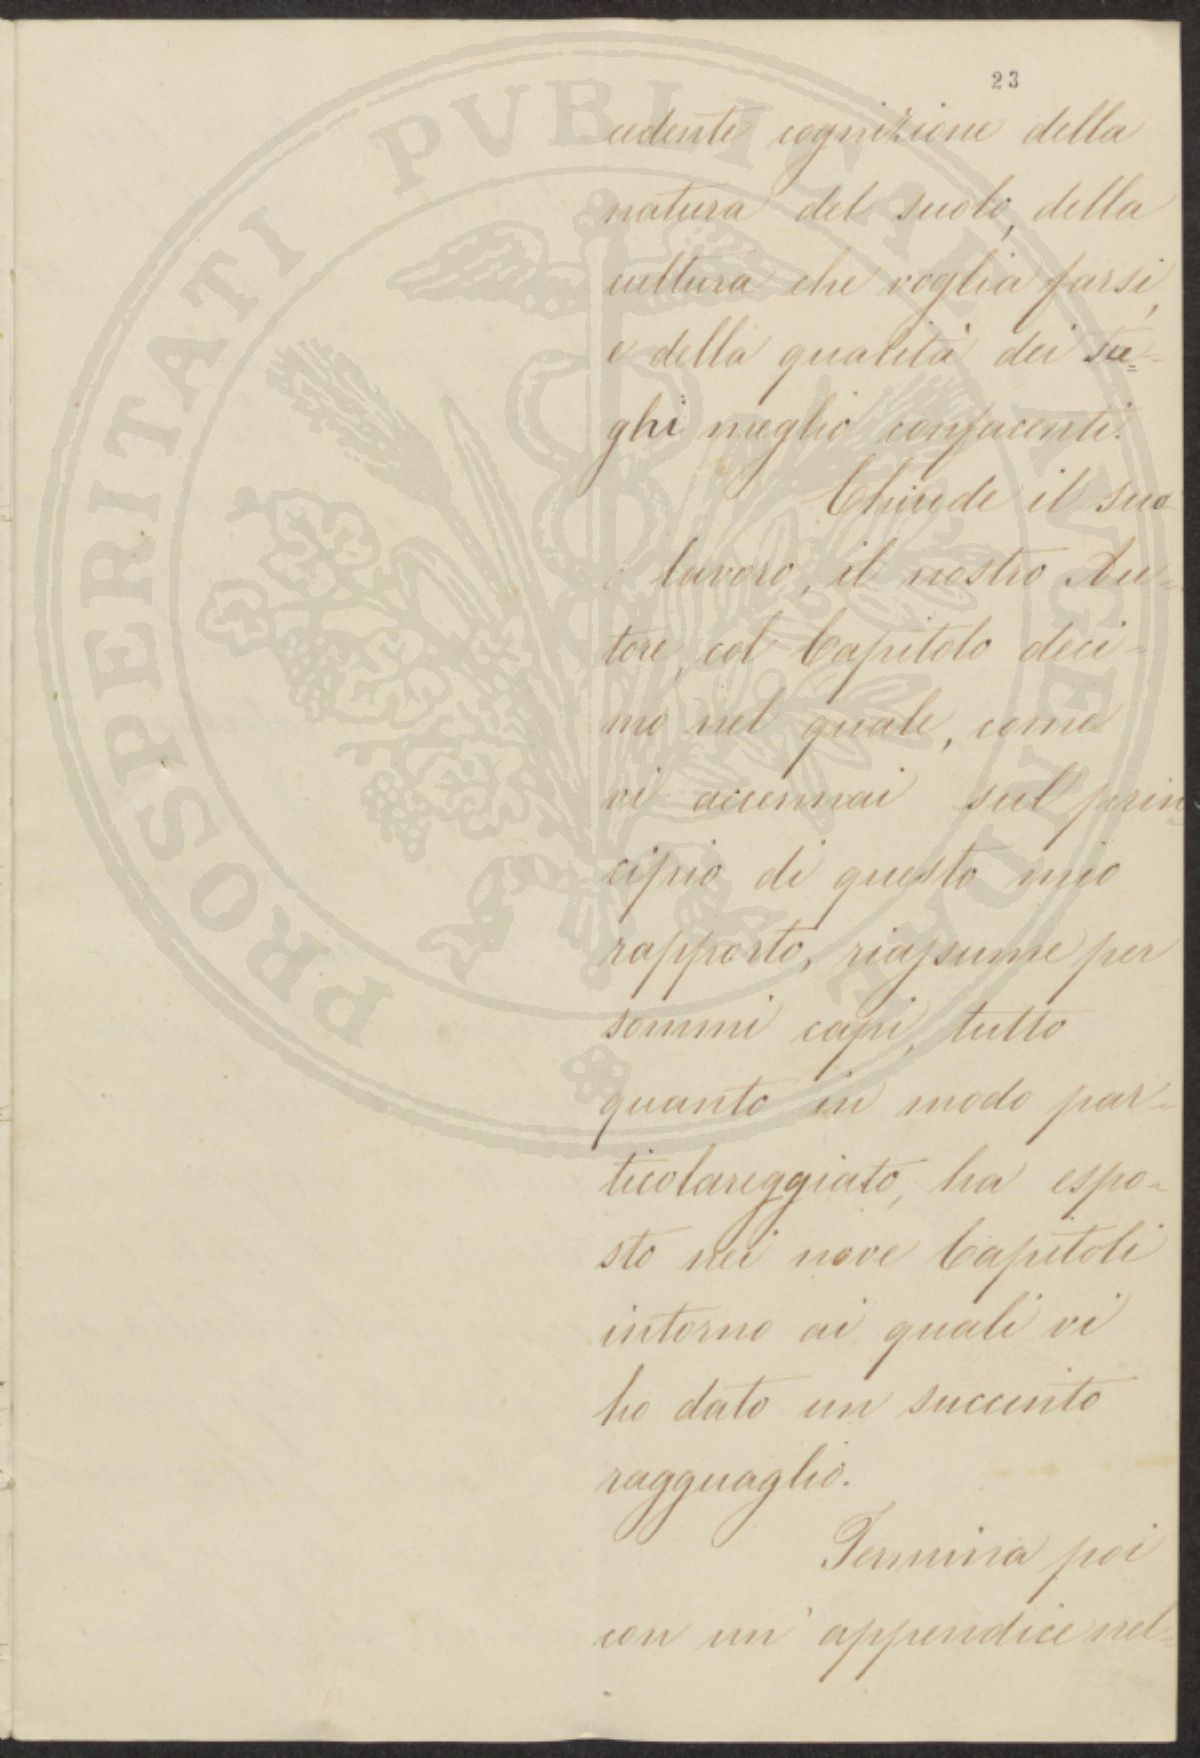 23
cedente cognizione della
natura del suolo, della
cultura che voglia farsi,
e della qualità dei su-
ghi meglio confacenti.
Chiude il suo
lavoro, il nostro Au-
tore, col Capitolo deci-
mo nel quale, come
vi accennai sul prin-
cipio di questo mio
rapporto, riassume per
sommi capi, tutto
quanto in modo par-
ticolareggiato, ha espo-
sto nei nove Capitoli
intorno ai quali vi
ho dato un succinto
ragguaglio.
Termina poi
con un' appendice nel-
PROSPERITATI PUBLICAE AUGENDAE